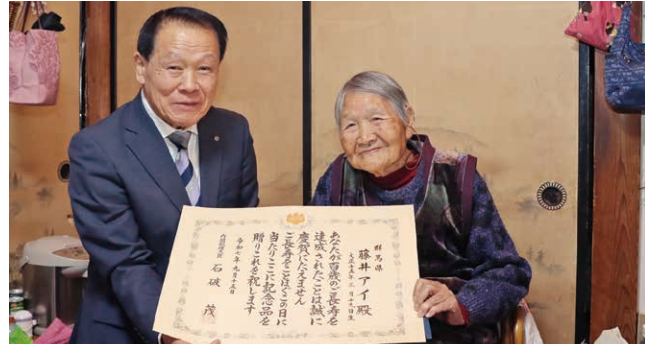 群馬県
藤井アイ殿
大正十五年 月十九日生
あなたが百歳のご長寿を
達成されたことは誠に
慶賀にたえません
ご長寿をことほぐこの日に
当たりここに記念品を
贈りこれを祝します
令和七年九月十五日
内閣総理大臣 石破 茂